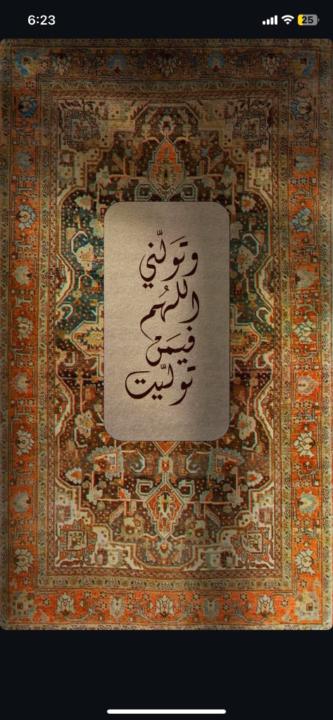 6:23
25
وتَولَّني
اللهُم
فيمَنْ
تولّيت